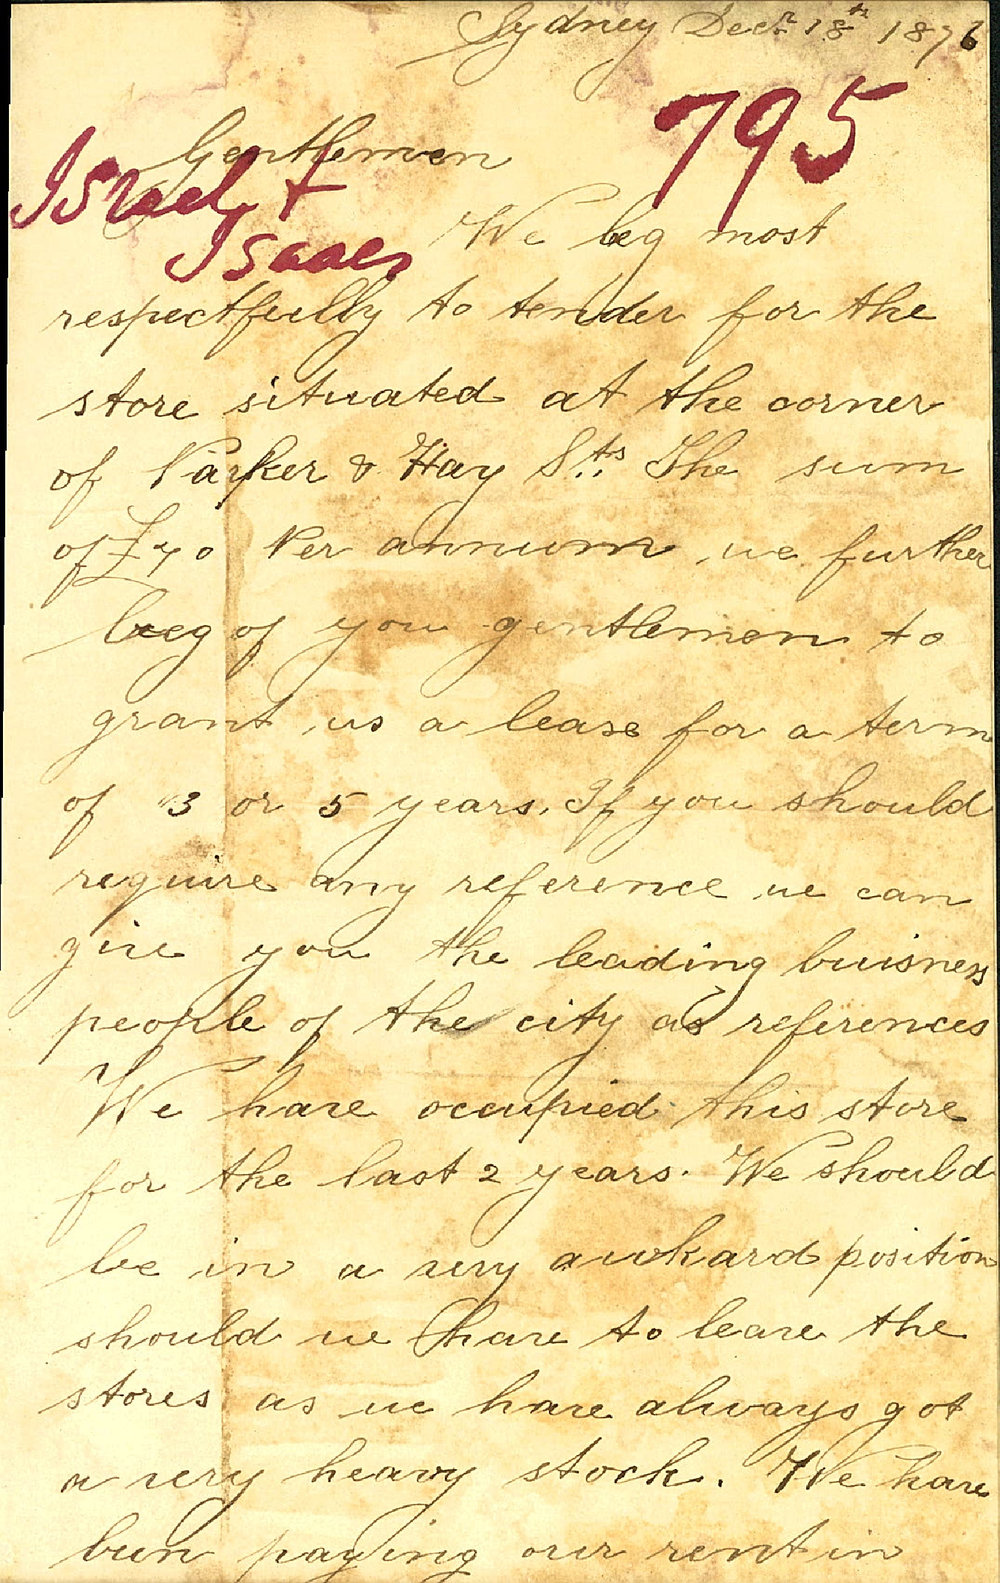 Sydney Decr 18th 1876
795
Gentlemen
Israel &
Isaacs
We beg most
respectfully to tender for the
store situated at the corner
of Parker & Hay Sts. The sum
of £70 Per annum, we further
beg of you gentlemen to
grant us a lease for a term
of 3 or 5 years. If you should
require any reference we can
give you the leading buisness
people of the city as references
We have occupied this store
for the last 2 years. We should
be in a very awkard position
should we have to leave the
stores as we have always got
a very heavy stock. We have
been paying our rent in